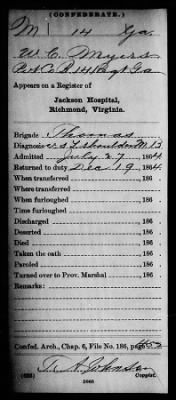 (CONFEDERATE.)
M 14 Ga.
W. C. Myers
Pvt Co 14 Regt Ga
Appears on a Register of
Jackson Hospital,
Richmond, Virginia.
Brigade Thomas
Diagnosis shoulder
Admitted July 27, 1864
Returned to duty Dec 19, 1864.
When transferred , 186
Where transferred
When furloughed , 186
Time furloughed
Discharged , 186
Deserted , 186
Died , 186
Taken the oath , 186
Paroled , 186
Turned over to Prov. Marshal , 186
Remarks:
Confed. Arch., Chap. 6, File No. 186, page
T. N. Johnson
Copyist.